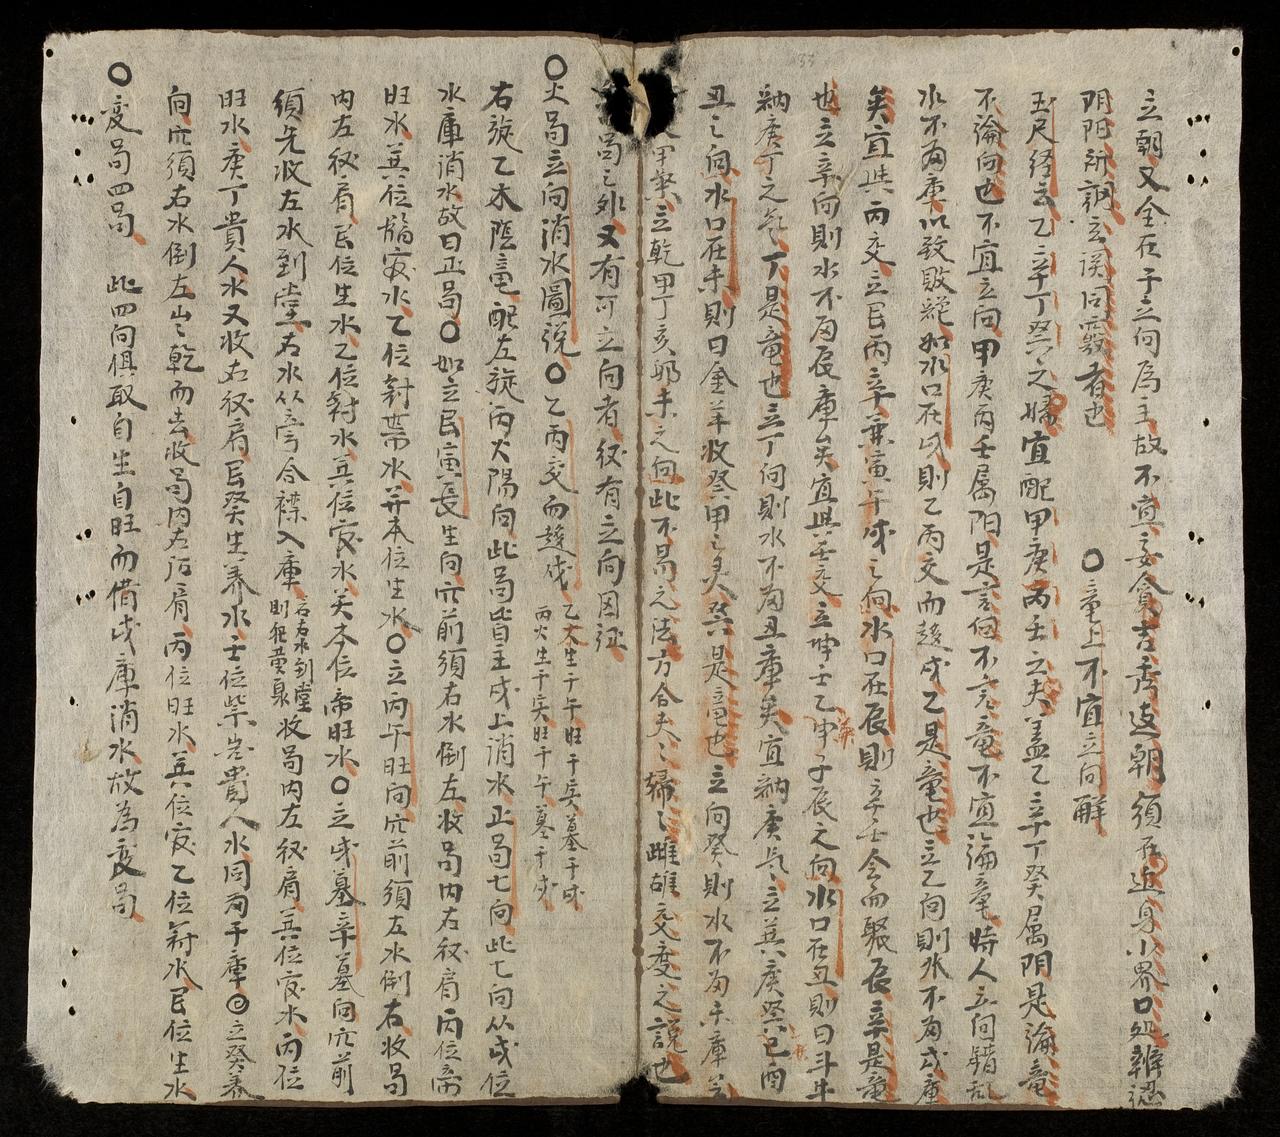 立朝又全在于立向爲主故不宜妄貪吉秀遠朝須在近身小界口處辨認
阴阳所謂玄関同竅者也　○竜上不宜立向解
玉尺经云乙辛丁癸之婦宜配甲庚丙壬之夫盖乙辛丁癸属阴是論竜
不論向也不宜立向甲庚丙壬属阳是言向不言竜不宜論竜時人立向錯乱
水不為庫以致敗絕如水口在戌則乙丙交而趍戌乙是竜也立乙向則水不為戌庫
矣宜與丙交立艮丙辛兼寅午戌之向水口在辰則辛壬会而聚辰辛是竜
也立辛向則水不為辰庫矣宜與壬交立坤壬乙申子辰之向水口在丑則曰斗牛
納庚丁之氣丁是竜也立丁向則水不為丑庫矣宜納庚氣立巽庚癸巳酉
丑之向水口在未則曰金羊收癸甲之灵癸是竜也立向癸則水不為未庫矣
甲聚立乾甲丁亥卯未之向此不易之法方合夫之婦之雌雄交度之說也
局之外又有可立向者彼有立向図证
○火局立向消水圖説○乙丙交而趍戌　乙木生于午旺于寅墓于戌
丙火生于寅旺于午墓于戌
右旋乙木陰竜配左旋丙火陽向此局皆主戌上消水正局七向此七向从戌位
水庫消水故曰正局○如立艮寅長生向穴前須右水倒左收局內右砂肩丙位帝
旺水巽位臨官水乙位對帶水并本位生水○立丙午旺向穴前須左水倒右收局
内左砂肩艮位生水乙位對水巽位官水矣本位帝旺水○立戌墓辛墓向穴前
須先收左水到堂右水从旁合襟入庫　若右水到堂
則犯黄泉　收局内左砂肩巽位官水丙位
旺水庚丁貴人水又收右砂肩艮癸生养水壬位柴岂貴人水同局于庫◎立癸养
向穴須右水倒左出乾而去收局内左右肩丙位旺水巽位官乙位對水艮位生水
○变局四局　此四向俱取自生自旺而借戌庫消水故為变局